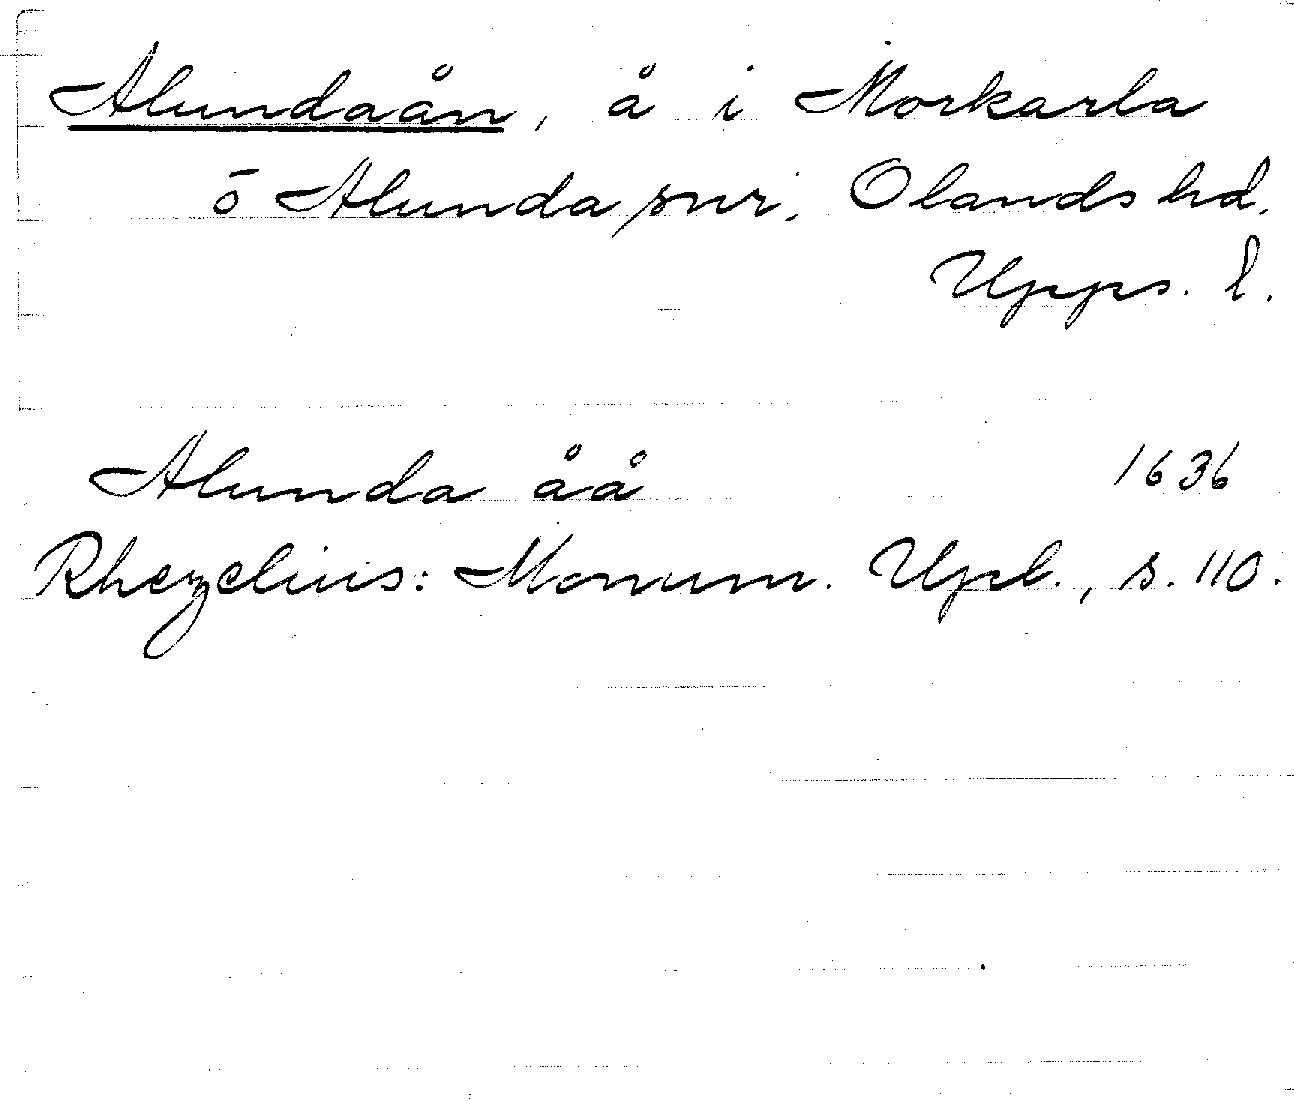 Alundaån, å i Morkarla
ō Alunda snr, Olands hd,
Upps. l.
Alunda åå 1636
Rhezelius: Monum. Upl., s. 110.